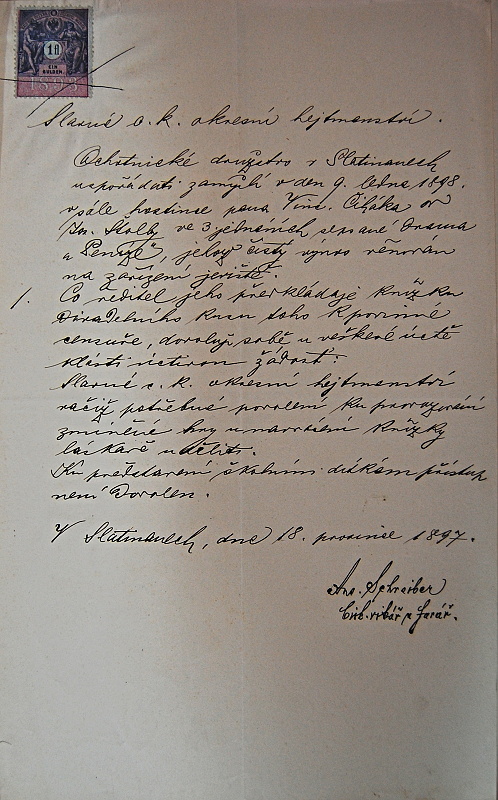 1 fl
EIN GULDEN
1893
Slavné c. k. okresní hejtmanství.
Ochotnické družstvo v Slatinanech
uspořádati zamýšlí v den 9. ledna 1898.
v sále hostince pana Vinc. Ciláka od
Jos. Štolby ve 3 jednáních sepsané drama
„Peníze", jehož čistý výnos věnován
na zařízení jeviště.
1. Co ředitel jeho předkládaje knížku
divadelního kusu toho k povinné
censuře, dovoluji sobě u veškeré úctě
klásti uctivou žádost:
Slavné c. k. okresní hejtmanství
račiž potřebné povolení ku provozování
zmíněné hry u navrácení knížky
láskavě uděliti.
Ku představení školním dítkám přístup
není dovolen.
V Slatinanech, dne 18. prosince 1897.
Ant. Schreiber
bisk. vikář a farář.